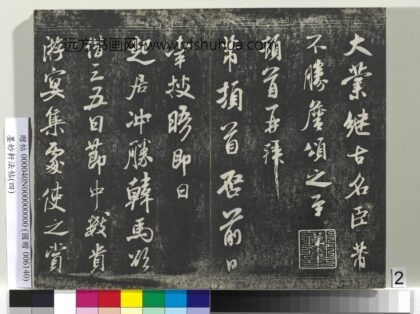 大業継古名臣芾
不勝詹頌之至
頓首再拜
芾頓首啓前日
幸披晤即日
起居沖勝韓馬欲
借三五日節中數貴
游宴集處使之賞
远方书画网·yfshuhua.com
墨妙軒法帖(四)
2